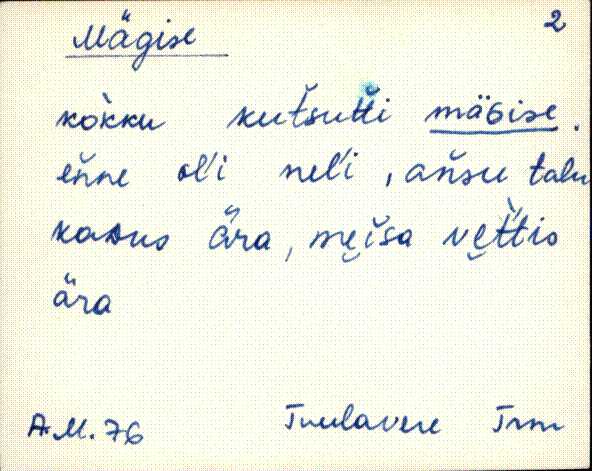 2
Mägise
kòkku kutsutti mäGise.
eňne ol'i nel'i, aňsu talu
kaDus ära, mẹiša vẹt̆tio
ära
A.M. 76 Tuulavere Trm